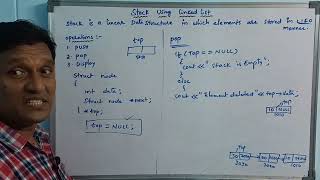 Stack Using Linked List
Stack is a linear Data Structure in which elements are stored in LIFO
manner.
operations :-
1. push
2. pop
3. Display
Struct node
{
int data;
Struct node *next;
} *top;
top = NULL;
top
pop
if (top == NULL)
{
cout << "Stack is Empty";
}
else
{
cout << "Element deleted" << top->data;
top
10 NULL
1010
top